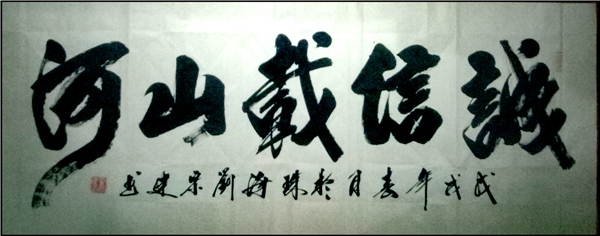 誠信載山河
戊戌年春月於珠海劉建书